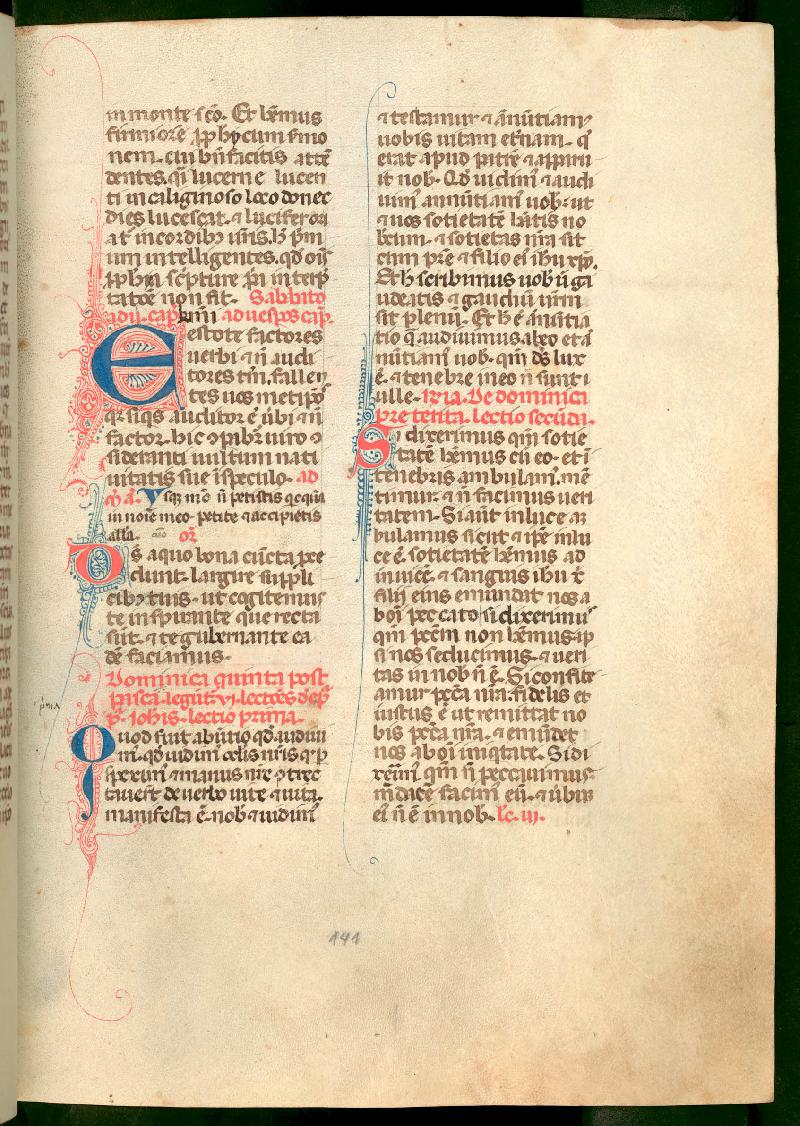 in monte sco. Et hēmus
firmiorē ꝓphycum ẜmo
nem. cui bn̄ facitis attē
dentes. qi lucerne lucen
ti in caliginoso loco donec
dies lucescat. ⁊ lucifer ori
at᷑ in cordibꝫ ur̄is. h̄ pm̄
um intelligentes. qd oīs
ꝓphīa scpture ꝓ̄a interp
tatōe non fit. Sabbato
ad ii. cap. ad uesꝑos cap.
Estote factores
uerbi ⁊ n̄ audi
tores tm̄. fallen
tes uos metip̄os
qr siqs auditor ē ūbi ⁊ n̄
factor. hic ꝯpabr̄ uiro ꝯ
sideranti uultum nati
uitatis sue ī speculo. ad
m̄. a. Usqꝫ mō n̄ petistis qcqua
in noīe meo. petite ⁊ accipietis
alła. or̄
Ds a quo bona cūcta ꝓce
dunt. largire suppli
cibꝫ tuis. ut cogitemus
te inspirante que recta
sūt. ⁊ te gubernante ea
dē faciamus.
Dominica quinta post
pasca. legūt᷑ vi. lectōes de epl
b. iohis. lectio prima.
Quod fuit ab initio qd audiui
m᷑. qd uidim᷑ oclis nr̄is q̄ p
speximᷣ ⁊ manus nr̄e ꝯtrec
tauer̄t de uerbo uite ⁊ uita.
manifesta ē. nob. ⁊ uidimᷣ
⁊ testamur ⁊ ānūtiamᷣ
uobis uitam et̄nam. q̄
erat apud patrē ⁊ apparu
it nob. Qd uidimᷣ ⁊ audi
uimᷣ annūtiamᷣ uob. ut
⁊ uos sotietatē hātis no
bcum. ⁊ sotietas nr̄a sit
cum pr̄e ⁊ filio eiᷣ ihu xp̄o.
Et h̄ scribimus uob ū ga
udeatis ⁊ gaudiū ur̄m
sit plenū. Et h̄ ē ānūtia
tio q̄ audiuimus ab eo et ā
nūtiamᷣ uob. qm̄ ds lux
ē. ⁊ tenebre in eo n̄ sunt
ulle. Feria. De dominici
pretenta. lectio secūda.
Si dixerimus qm̄ sotie
tatē hēmus cū eo. et ī
tenebris ambulamᷣ. mē
timur. ⁊ n̄ facimus ueri
tatem. Si aūt in luce am
bulamus sicut ⁊ ip̄e in lu
ce ē sotietatē hēmus ad
inuicē. ⁊ sanguis ihu x̄
filij eius emundat nos a
b oī peccato. si dixerimus
qm̄ pccm̄ non hēmus. ip
si nos seducimus. ⁊ ueri
tas in nob n̄ ē. Si confite
amur pcc̄a nr̄a. fidelis et
iustus ē ut remittat no
bis pcc̄a nr̄a. ⁊ emūdet
nos ab oī iniqtate. Si di
xerimᷣ qm̄ n̄ peccauimus
mdacē facimᷣ eū. ⁊ ūbum
eiᷣ n̄ ē in nob. łc. iii.
141